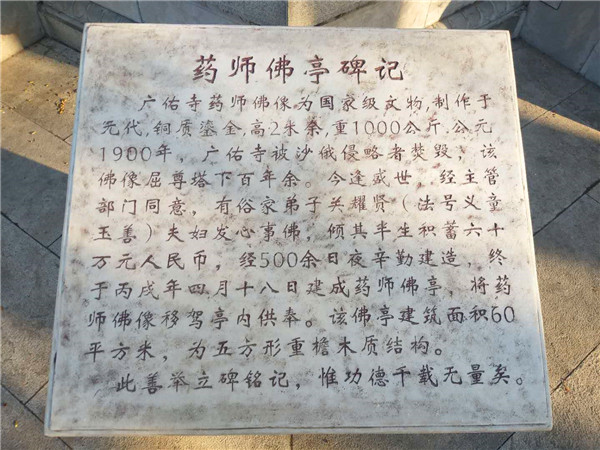 药师佛亭碑记
广佑寺药师佛像为国家级文物,制作于
元代,铜质鎏金,高2米余,重1000公斤.公元
1900年，广佑寺被沙俄侵略者焚毁，该
佛像屈尊塔下百年余。今逢盛世，经主管
部门同意，有俗家弟子关耀贤（法号义童
玉善）夫妇发心事佛，倾其半生积蓄六十
万元人民币，经500余日夜辛勤建造，终
于丙戌年四月十八日建成药师佛亭，将药
师佛像移驾亭内供奉。该佛亭建筑面积60
平方米，为五方形重檐木质结构。
此善举立碑铭记，惟功德千载无量矣。